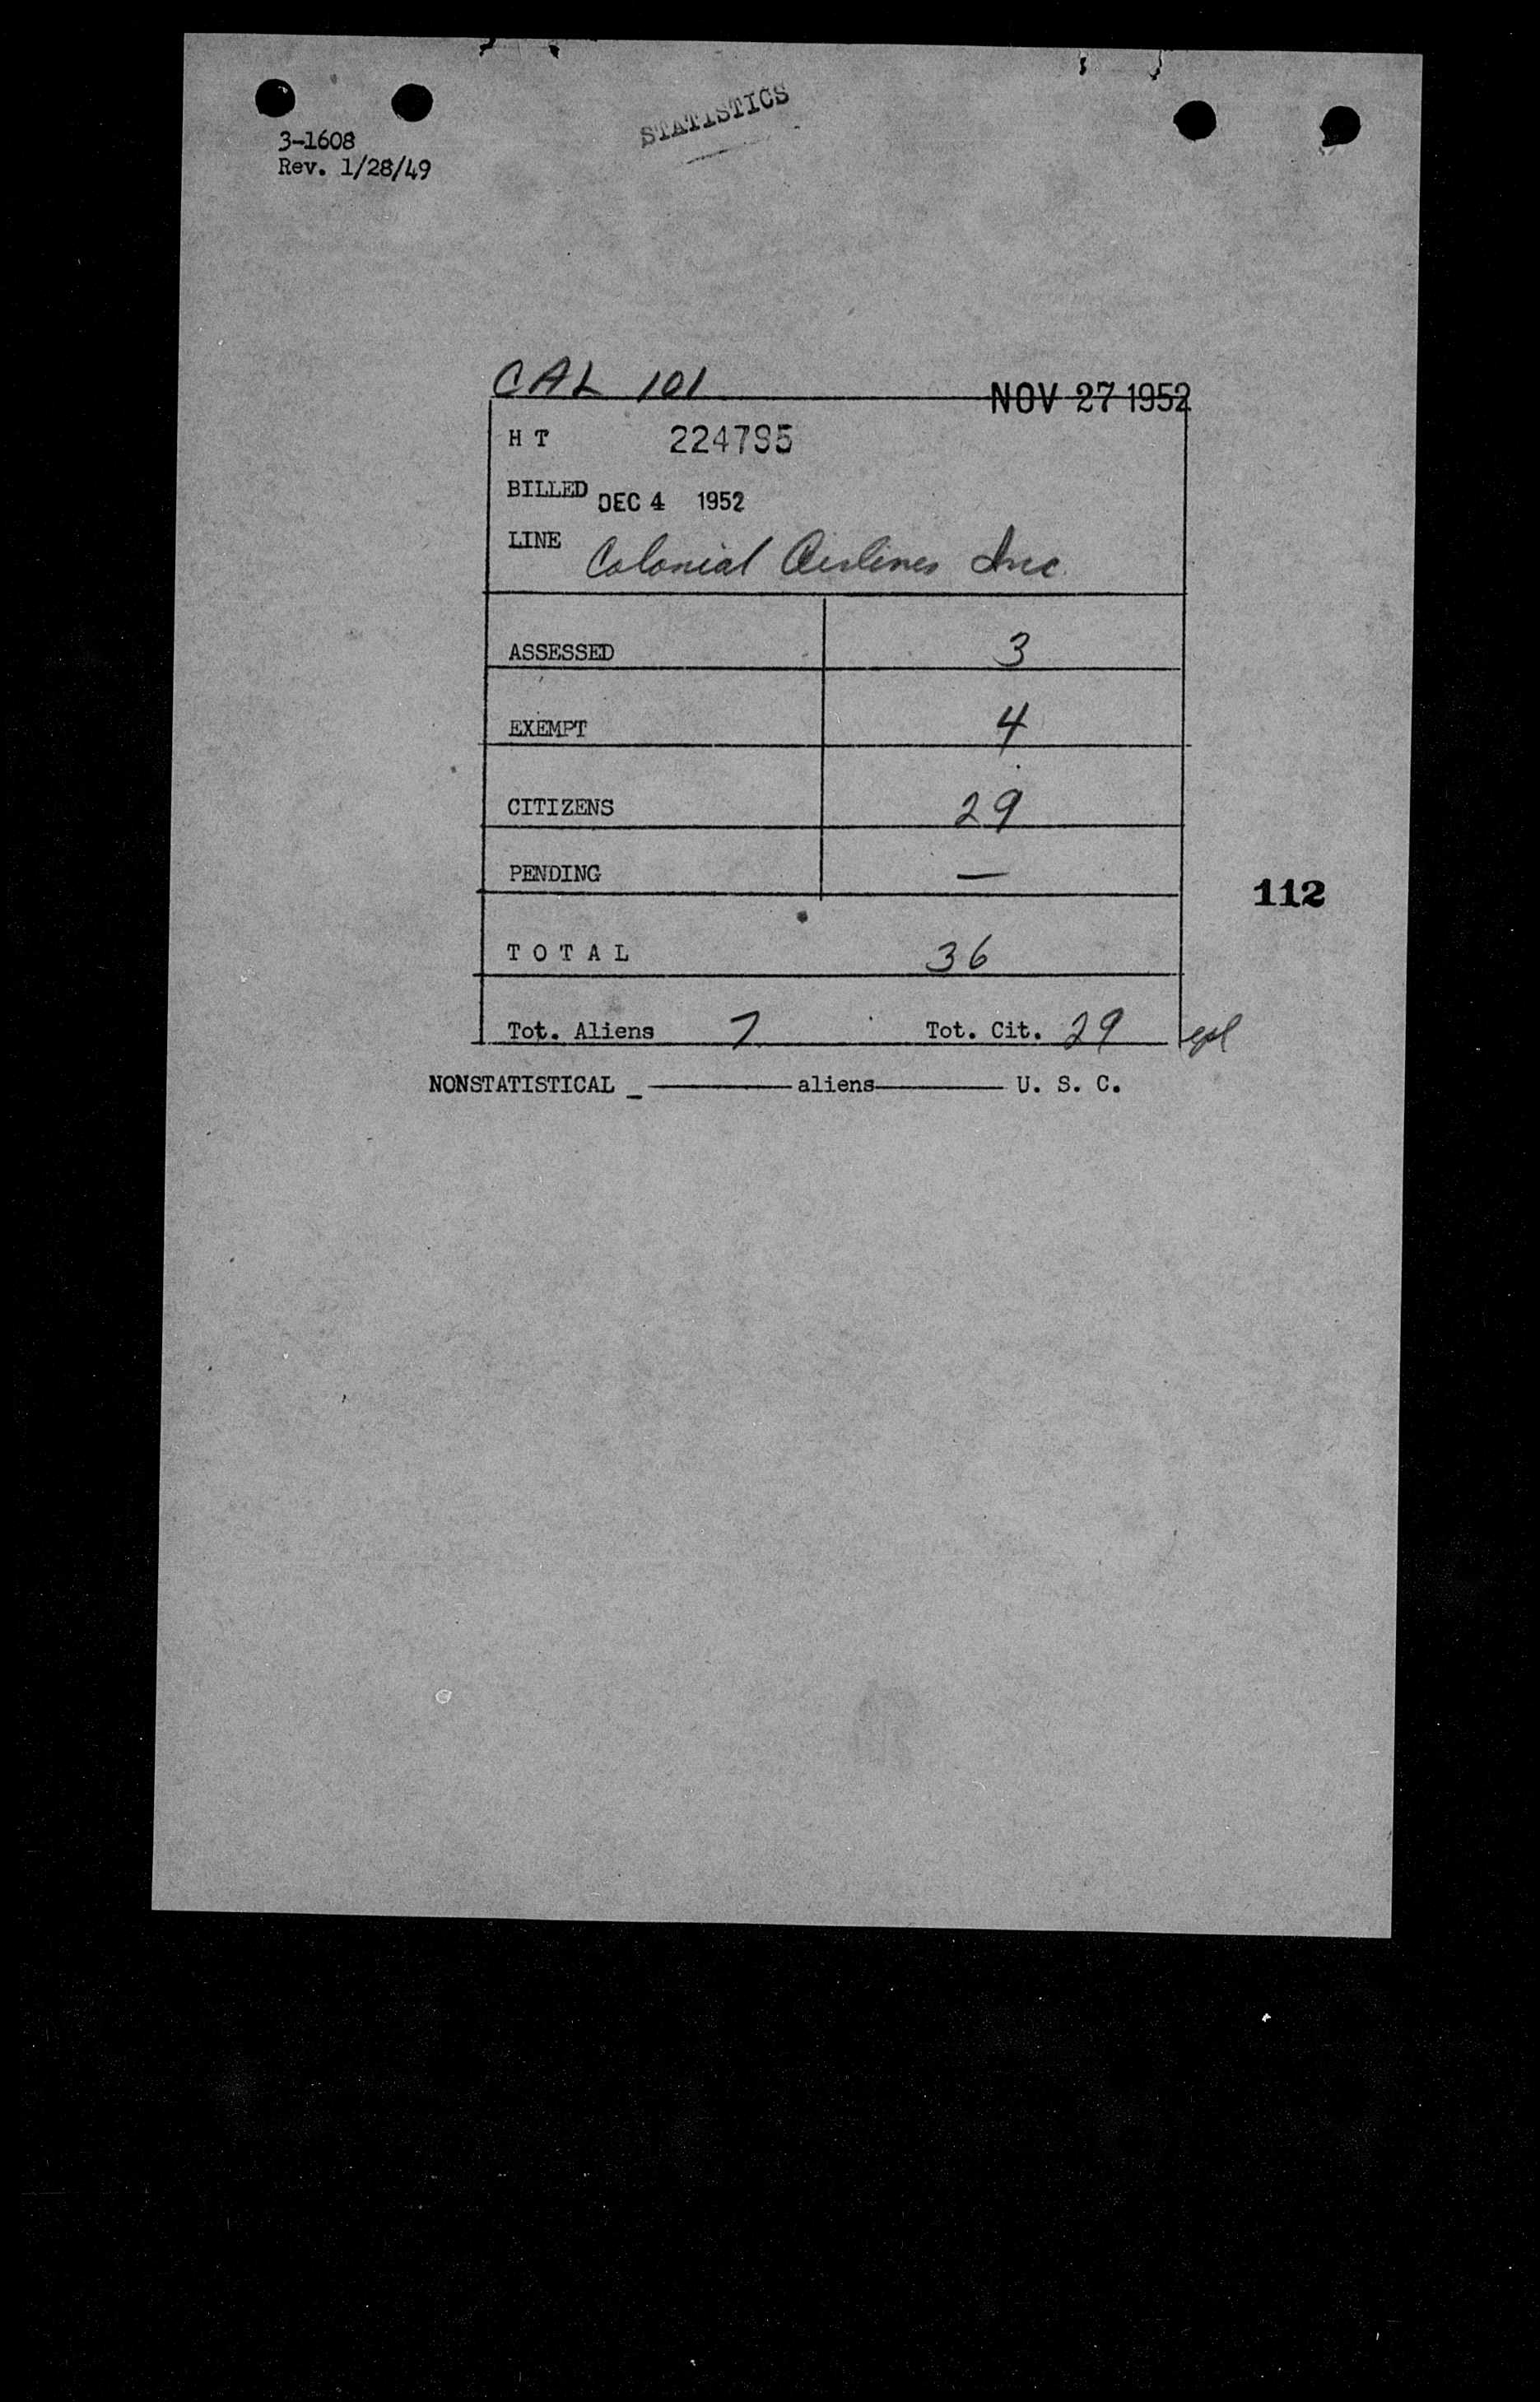 STATISTICS
3-1608
Rev. 1/28/49
CAL 101 NOV 27 1952
H T 224795
BILLED DEC 4 1952
LINE Colonial Airlines Inc
ASSESSED 3
EXEMPT 4
CITIZENS 29
PENDING —
112
T O T A L 36
Tot. Aliens 7 Tot. Cit. 29
NONSTATISTICAL _ ———— aliens ———— U. S. C.